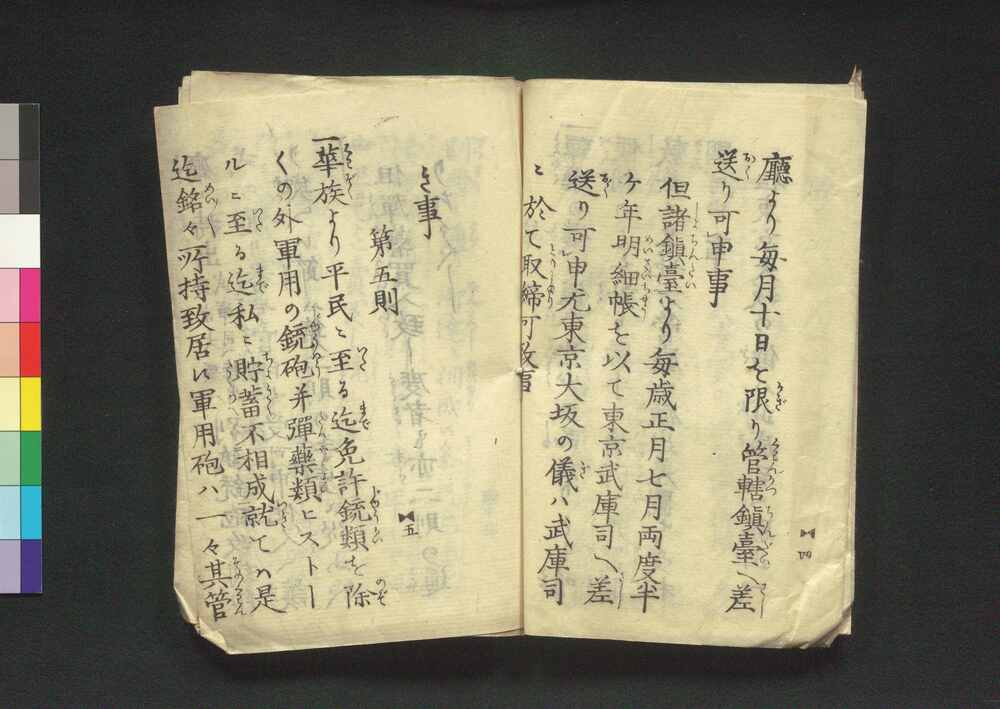 廳より毎月十日を限り管轄鎭臺へ差
送り可申事
但諸鎭臺より毎歳正月七月両度半
ケ年明細帳を以て東京武庫司へ差
送り可申尤東京大坂の儀ハ武庫司
ニ於て取締可致事
四
き事
第五則
五
一華族より平民ニ至る迄免許銃類を除
くの外軍用の銃砲并彈藥類ヒストー
ルニ至る迄私ニ貯蓄不相成就てハ是
迄銘々所持致居候軍用砲ハ一々其管